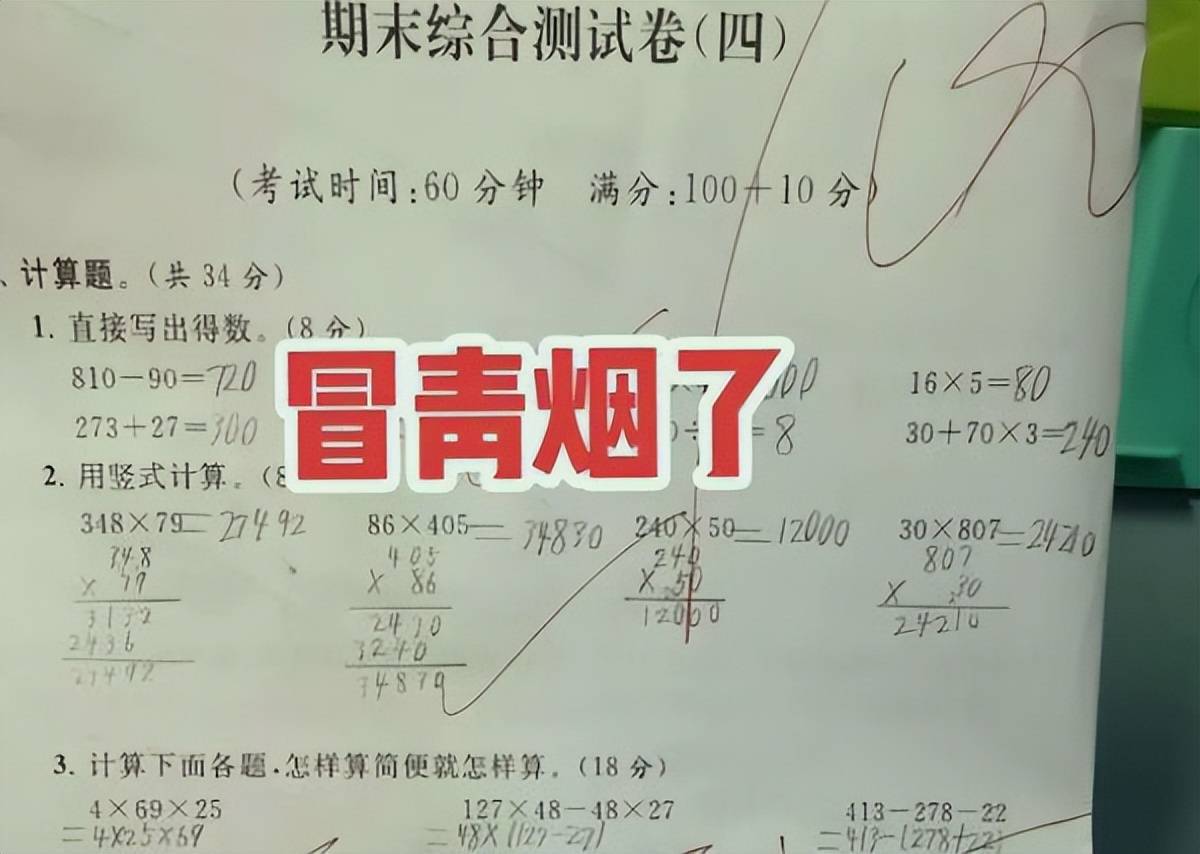 期末综合测试卷(四)
(考试时间:60分钟 满分:100+10分)
、计算题。(共34分)
1. 直接写出得数。(8分)
冒青烟了
810-90=720 16×5=80
273+27=300 =8 30+70×3=240
2. 用竖式计算。(8
348×79=27492 86×405=34830 240×50=12000 30×807=24210
348 405 240 807
× 79 × 86 × 50 × 30
3132 2430 12000 24210
2436 3240
27492 34830
3. 计算下面各题,怎样算简便就怎样算。(18分)
4×69×25 127×48-48×27 413-278-22
=4×25×69 =48×(127-27) =413-(278+22)